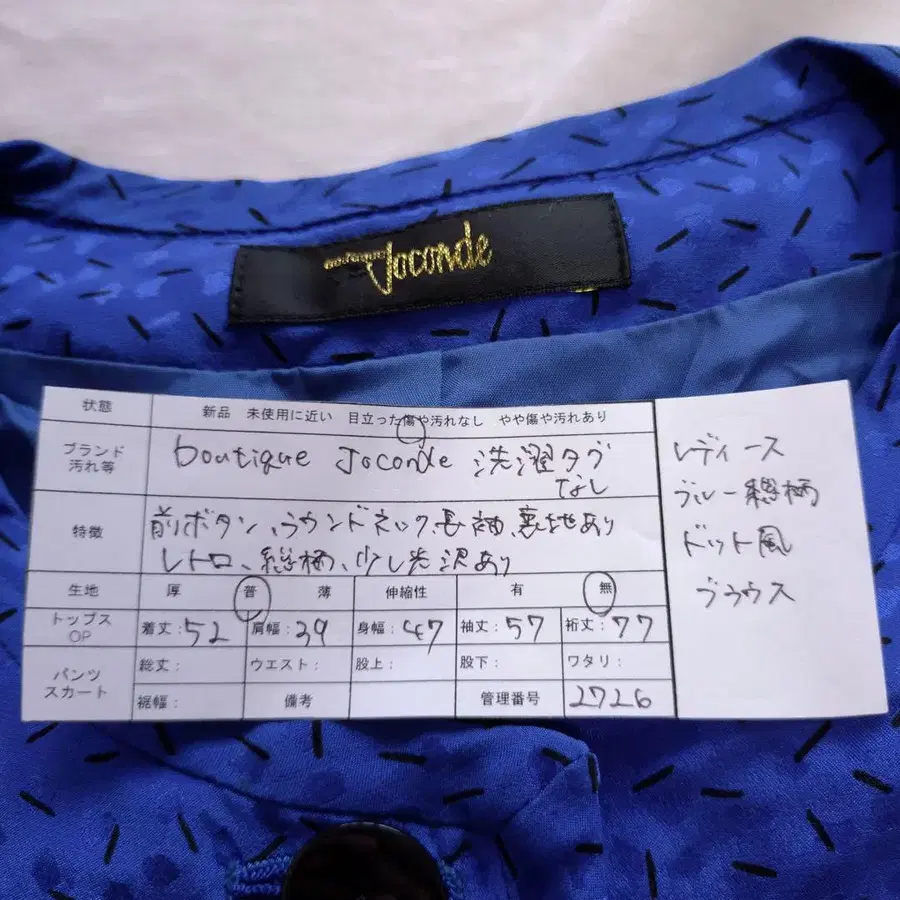 boutique Joconde
状態 新品 未使用に近い 目立った傷や汚れなし やや傷や汚れあり
ブランド
汚れ等
boutique Joconde 洗濯タグ
なし
特徴
前ボタン、ラウンドネック、長袖、裏地あり
レトロ、総柄、少し光沢あり
生地 厚 普 薄 伸縮性 有 無
トップス
OP
着丈:52 肩幅:39 身幅:47 袖丈:57 裄丈:77
パンツ
スカート
総丈: ウエスト: 股上: 股下: ワタリ:
裾幅: 備考 管理番号 2726
レディース
ブルー総柄
ドット風
ブラウス